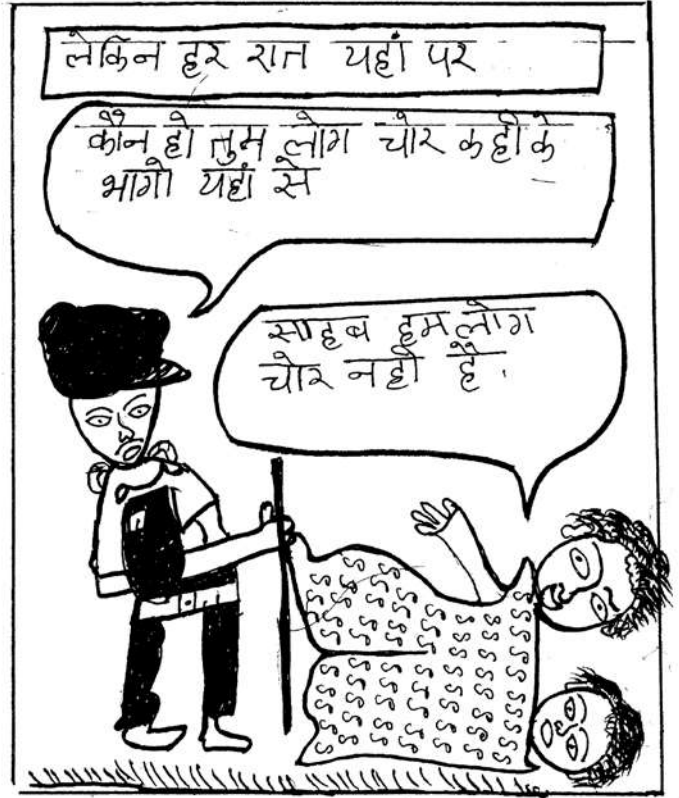 लेकिन हर रात यहां पर
कौन हो तुम लोग चोर कही के
भागो यहां से
साहब हम लोग
चोर नही है.